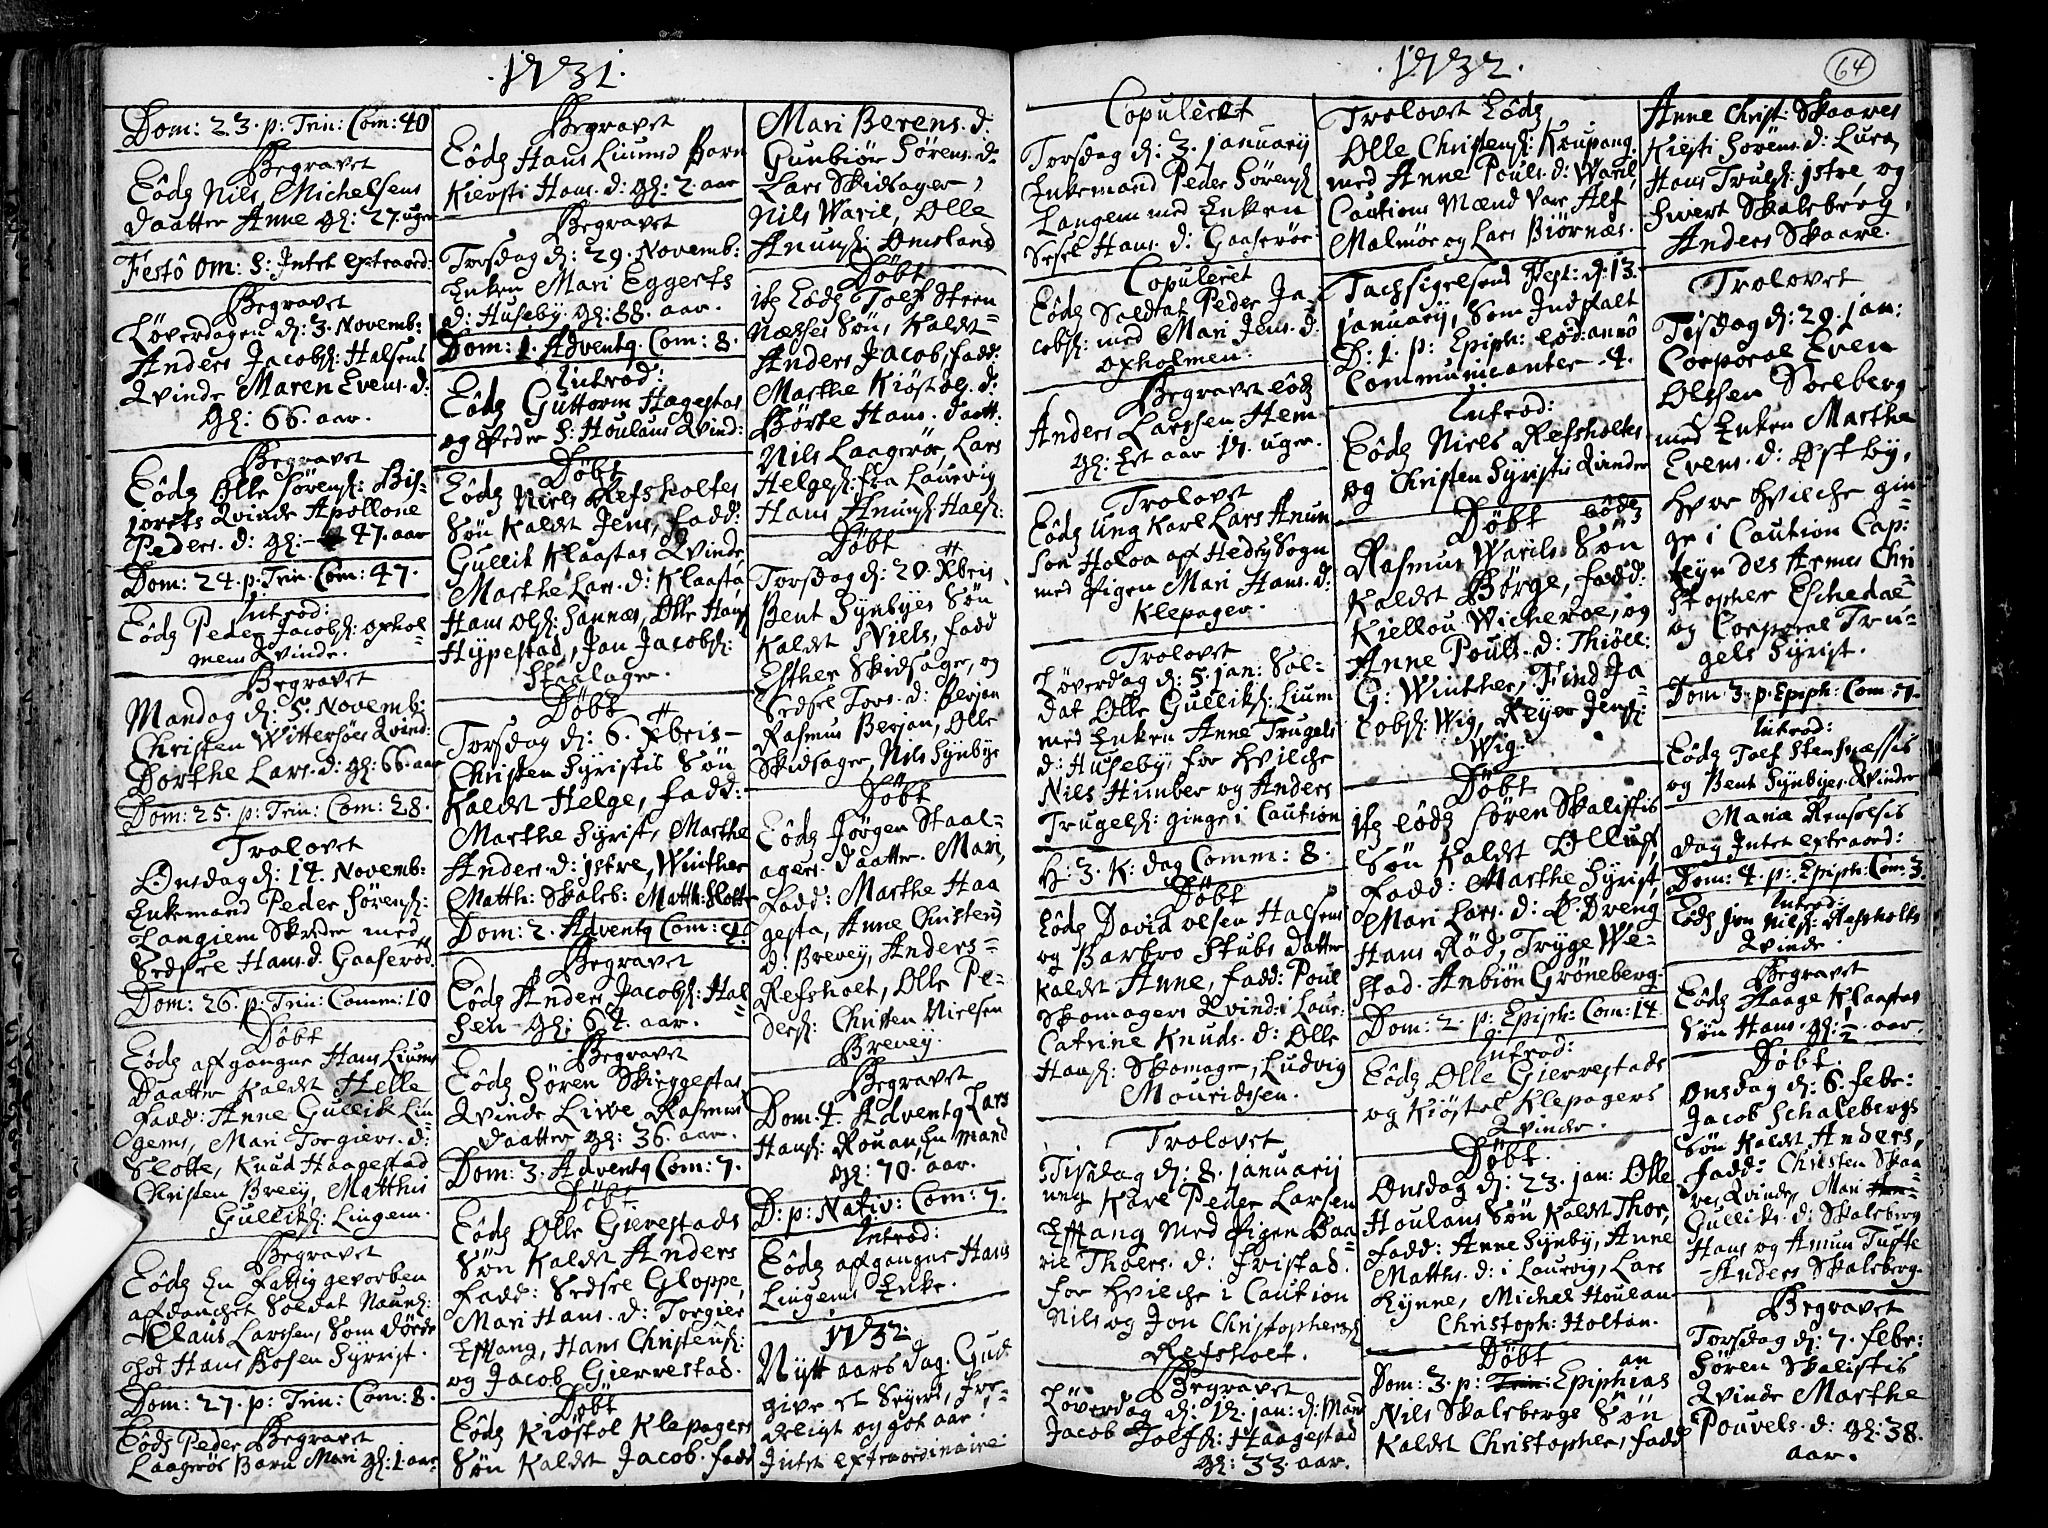 1731.
Dom: 23. p: Trin: Com: 40
Begravet
Eôdẽ Nils Michelsens
Daatter Anne gl: 27. uger
Festô Om: S: Intet Extraord:
Begravet
Løverdagen d: 3. Novemb:
Anders Jacobs: Halsens
Qvinde Maren Evens. d:
gl: 66. aar.
Begravet
Eôdẽ Olle Sørens:
Qvinde Apollone
Peders. d: gl: 47. aar
Dom: 24. p. Trin. Com: 47.
Introd:
Eôdẽ Peder Jacobs: Oxhol
men Qvinde.
Begravet
Mandag d: 5. Novemb:
Christen Wittersøes Qvind:
Dorthe Lars. d: gl: 66. aar
Dom: 25. p: Trin: Com: 28.
Trolovet
Onsdag d: 14. Novemb:
Enkemand Peder Sørens:
Langiem Skreder med
Sedsel Hans. d. Gaaserød.
Dom: 26. p: Trin: Comm: 10
Døbt
Eôdẽ afgangne Hans Liums
Daatter Kaldet Helle
Fadd: Anne Gullik Lin
gems, Mari Torgiers. d:
Slotte, Knud Haagestad
Christen Breey, Matthis
Gulliks: Lingem.
Begravet
Eôdẽ En fattig gevorben
afdancket Soldat Naunl:
Claus Larssen, Som døede
hos Hans Bosen Syrrist.
Dom: 27. p: Trin: Com: 8.
Begravet
Eôdẽ Peder
Laagerøs Barn Mari gl: 1. aar
Begravet
Eôdẽ Hans Liumsd Barn
Kiersti Hans. d: gl: 2. aar
Begravet
Torsdag d: 29. Novemb:
Enken Mari Eggerts
d: Huseby. gl: 88. aar.
Dom: 1. Adventq Com: 8.
Introd:
Eôdẽ Guttorm Hagestas
og Peder S: Houlans Qvind:
Døbt
Eôdẽ Niels Refsholtes
Søn Kaldet Jens, Fadd:
Gullik Klaastas Qvinde
Marthe Lar. d: Klaasta
Hans Ols: Sannes, Olle Hans
Hypestad, Jan Jacobs:
Staalager.
Døbt
Torsdag d: 6. Xbris
Christen Syristis Søn
Kaldet Helge, Fadd:
Marthe Syrist, Marthe
Anders. d: Istre, Winther
Matth: Skaleb: Matth: Slotte
Dom: 2. Adventq Com: 4.
Begravet
Eôdẽ Anders Jacobs: Hal
sen gl: 64. aar.
Begravet
Eôdẽ Søren Skieggestas
Qvinde Liwe Rasmus
daatter gl: 36. aar.
Dom: 3. Adventq Com: 7.
Døbt
Eôdẽ Olle Gierestads
Søn Kaldet Anders
Fadd: Sedsel Gloppe,
Mari Hans. d: Torgier
Effang, Hans Christens:
og Jacob Gierrestad.
Døbt
Eôdẽ Kiøstol Klepagers
Søn Kaldet Jacob. Fadd
Mari Berens. d:
Gunbiør Sørens. d:
Lars Skidsager,
Nils Waril, Olle
Anuns: Omsland
Døbt
Itẽ Eôdẽ Tolf Steen
Næsses Søn, Kaldet
Anders Jacob, Fadd:
Marthe Kiøstols. d:
Børke Hans. Daatt:
Nils Laagerøe, Lars
Helges: fra Laurvig
Hans Anuns: Hals:
Døbt
Torsdag d: 20. Xbris
Bent Synbyes Søn
Kaldet Niels, Fadd
Esther Skidsager, og
Sedsel Tors. d: Berjan
Rasmus Berjan, Olle
Skidsager, Nils Synbye
Døbt
Eôdẽ Jørgen Staal-
agers. Daatter. Mari,
Fadd: Marthe Haa
gesta, Anne Christens
d: Brevey, Anders
Refsholt, Olle Pe-
ders: Christen Nielsen
Brevey.
Begravet
Dom: 4. Adventq Lars
Hans: Rouan, En mand
gl: 70. aar.
D: p: Nativ: Com: 7.
Introd:
Eôdẽ afgangne Hans
Lingems Enke.
1732.
Nytt aars Dag. Gud
give et Seyers, Fre-
deligt og got aar!
Intet extraordinaire
1732.
64
Copuleret
Torsdag d: 3. Januarij
Enkemand Peder Sørens:
Langem med Enken
Sesel Hans. d: Gaaserøe
Copuleret
Eôdẽ Soldat Peder Ja-
cobs: med Mari Jens. d:
Oxholmen.
Begravet Eôdẽ
Anders Larssen Hem
gl: Et aar 17. uger.
Trolovet
Eôdẽ Ung Karl Lars Anun
Son Holoa af Hedry Sogn
med Pigen Mari Hans. d:
Klepager.
Trolovet
Løverdag d: 5. Jan: Sol-
dat Olle Gulliks: Lium
med Enken Anne Trugels
d: Huseby, for hvilche
Nils Humber og Anders
Trugels: ginge i Caution
H: 3. K: dag Comm: 8.
Døbt
Eôdẽ David Olsen Halsens
og Barbro Stubs Datter
Kaldet Anne, Fadd: Poul
Skomagers Qvinde Laur:
Catrine Knuds. d: Olle
Hans: Skomager, Ludvig
Mouridssen.
Trolovet
Tisdag d: 8. Januarij
ung Karl Peder Larsen
Effang med Pigen Baa-
rel Thoers. d: Fristad.
for hvilche i Caution
Nils og Jon Christophers:
Refsholt.
Begravet
Løverdag d: 12. Jan: d: Mand
Jacob Tolfs: Haagestad
gl: 33. aar.
Trolovet Eôdẽ
Olle Christens: Kaupang.
med Anne Pouls. d: Waril,
Cautions Mænd var Alf
Malmøe og Lars Biørnæs.
Tachsigelsens Fest: d: 13.
Januarij, Som Indfalt
D: 1. p: Epiph: Eôd: annô
Communicanter 4.
Introd:
Eôdẽ Niels Refsholtes
og Christen Syristis Qvinder
Døbt Eôdẽ
Rasmus Warils Søn
Kaldet Børge, Fadd:
Kiellou Wicherøe, og
Anne Pouls. d: Thiøll:
G: Winther, Find Ja-
cobs: Wig, Reyer Jens:
Wig.
Døbt
Itẽ Eôdẽ Søren Skalistis
Søn Kaldet Olluf,
Fadd: Marthe Syrist,
Mari Lars. d: P. Dreng
Hans Rød, Tryge We-
stad. Anbiøn Grøneberg.
Dom: 2. p: Epiph: Com: 14.
Introd:
Eôdẽ Olle Gierrestads
og Kiøstel Klepagers
Qvinde.
Døbt.
Onsdag d: 23. Jan: Olle
Houlans Søn Kaldet Thor,
Fadd: Anne Synby, Anne
Matths. d: i Laurvig, Lars
Rynne, Michel Houlan
Christoph: Holtan.
Døbt
Dom: 3. p: Trin: Epiphias
an
Nils Skalsbergs Søn
Kaldet Christopher, Fadd
Anne Christ: Skaares
Kiesti Sørens. d: Lura,
Hans Truls: Istre, og
Swert Skalsberg,
Anders Skaare.
Trolovet
Tisdag d: 29. Jan:
Corporal Even
Olssen Soelberg
med Enken Martha
Evens. d: Østby,
for hvilche gin-
ge i Caution Cap:
teyn des Armes Chri
stopher Eschedal
og Corporal Tru-
gels Syrist.
Dom: 3. p. Epiph: Com: 7.
Introd:
Eôdẽ Tolf Stensnæssis
og Bent Synbyes Qvinder
Mariæ Renselsis
dag Intet extraord:
Dom: 4. p: Epiph: Com: 3.
Introd:
Eôdẽ Jon Nils: Refsholts
Qvinde.
Begravet
Eôdẽ Haage Klaastas
Søn Hans. gl: ½ aar.
Døbt.
Onsdag d: 6. Febr:
Jacob Schalsbergs
Søn Kaldet Anders,
Fadd: Christen Skaa-
res Qvinde, Mari
Gulliks. d: Skalsberg
Hans og Amun Tufte
Anders Skalsberg.
Begravet
Torsdag d: 7. Febr:
Søren Skalistis
Qvinde Marthe
Pouvels. d: gl: 38.
aar.